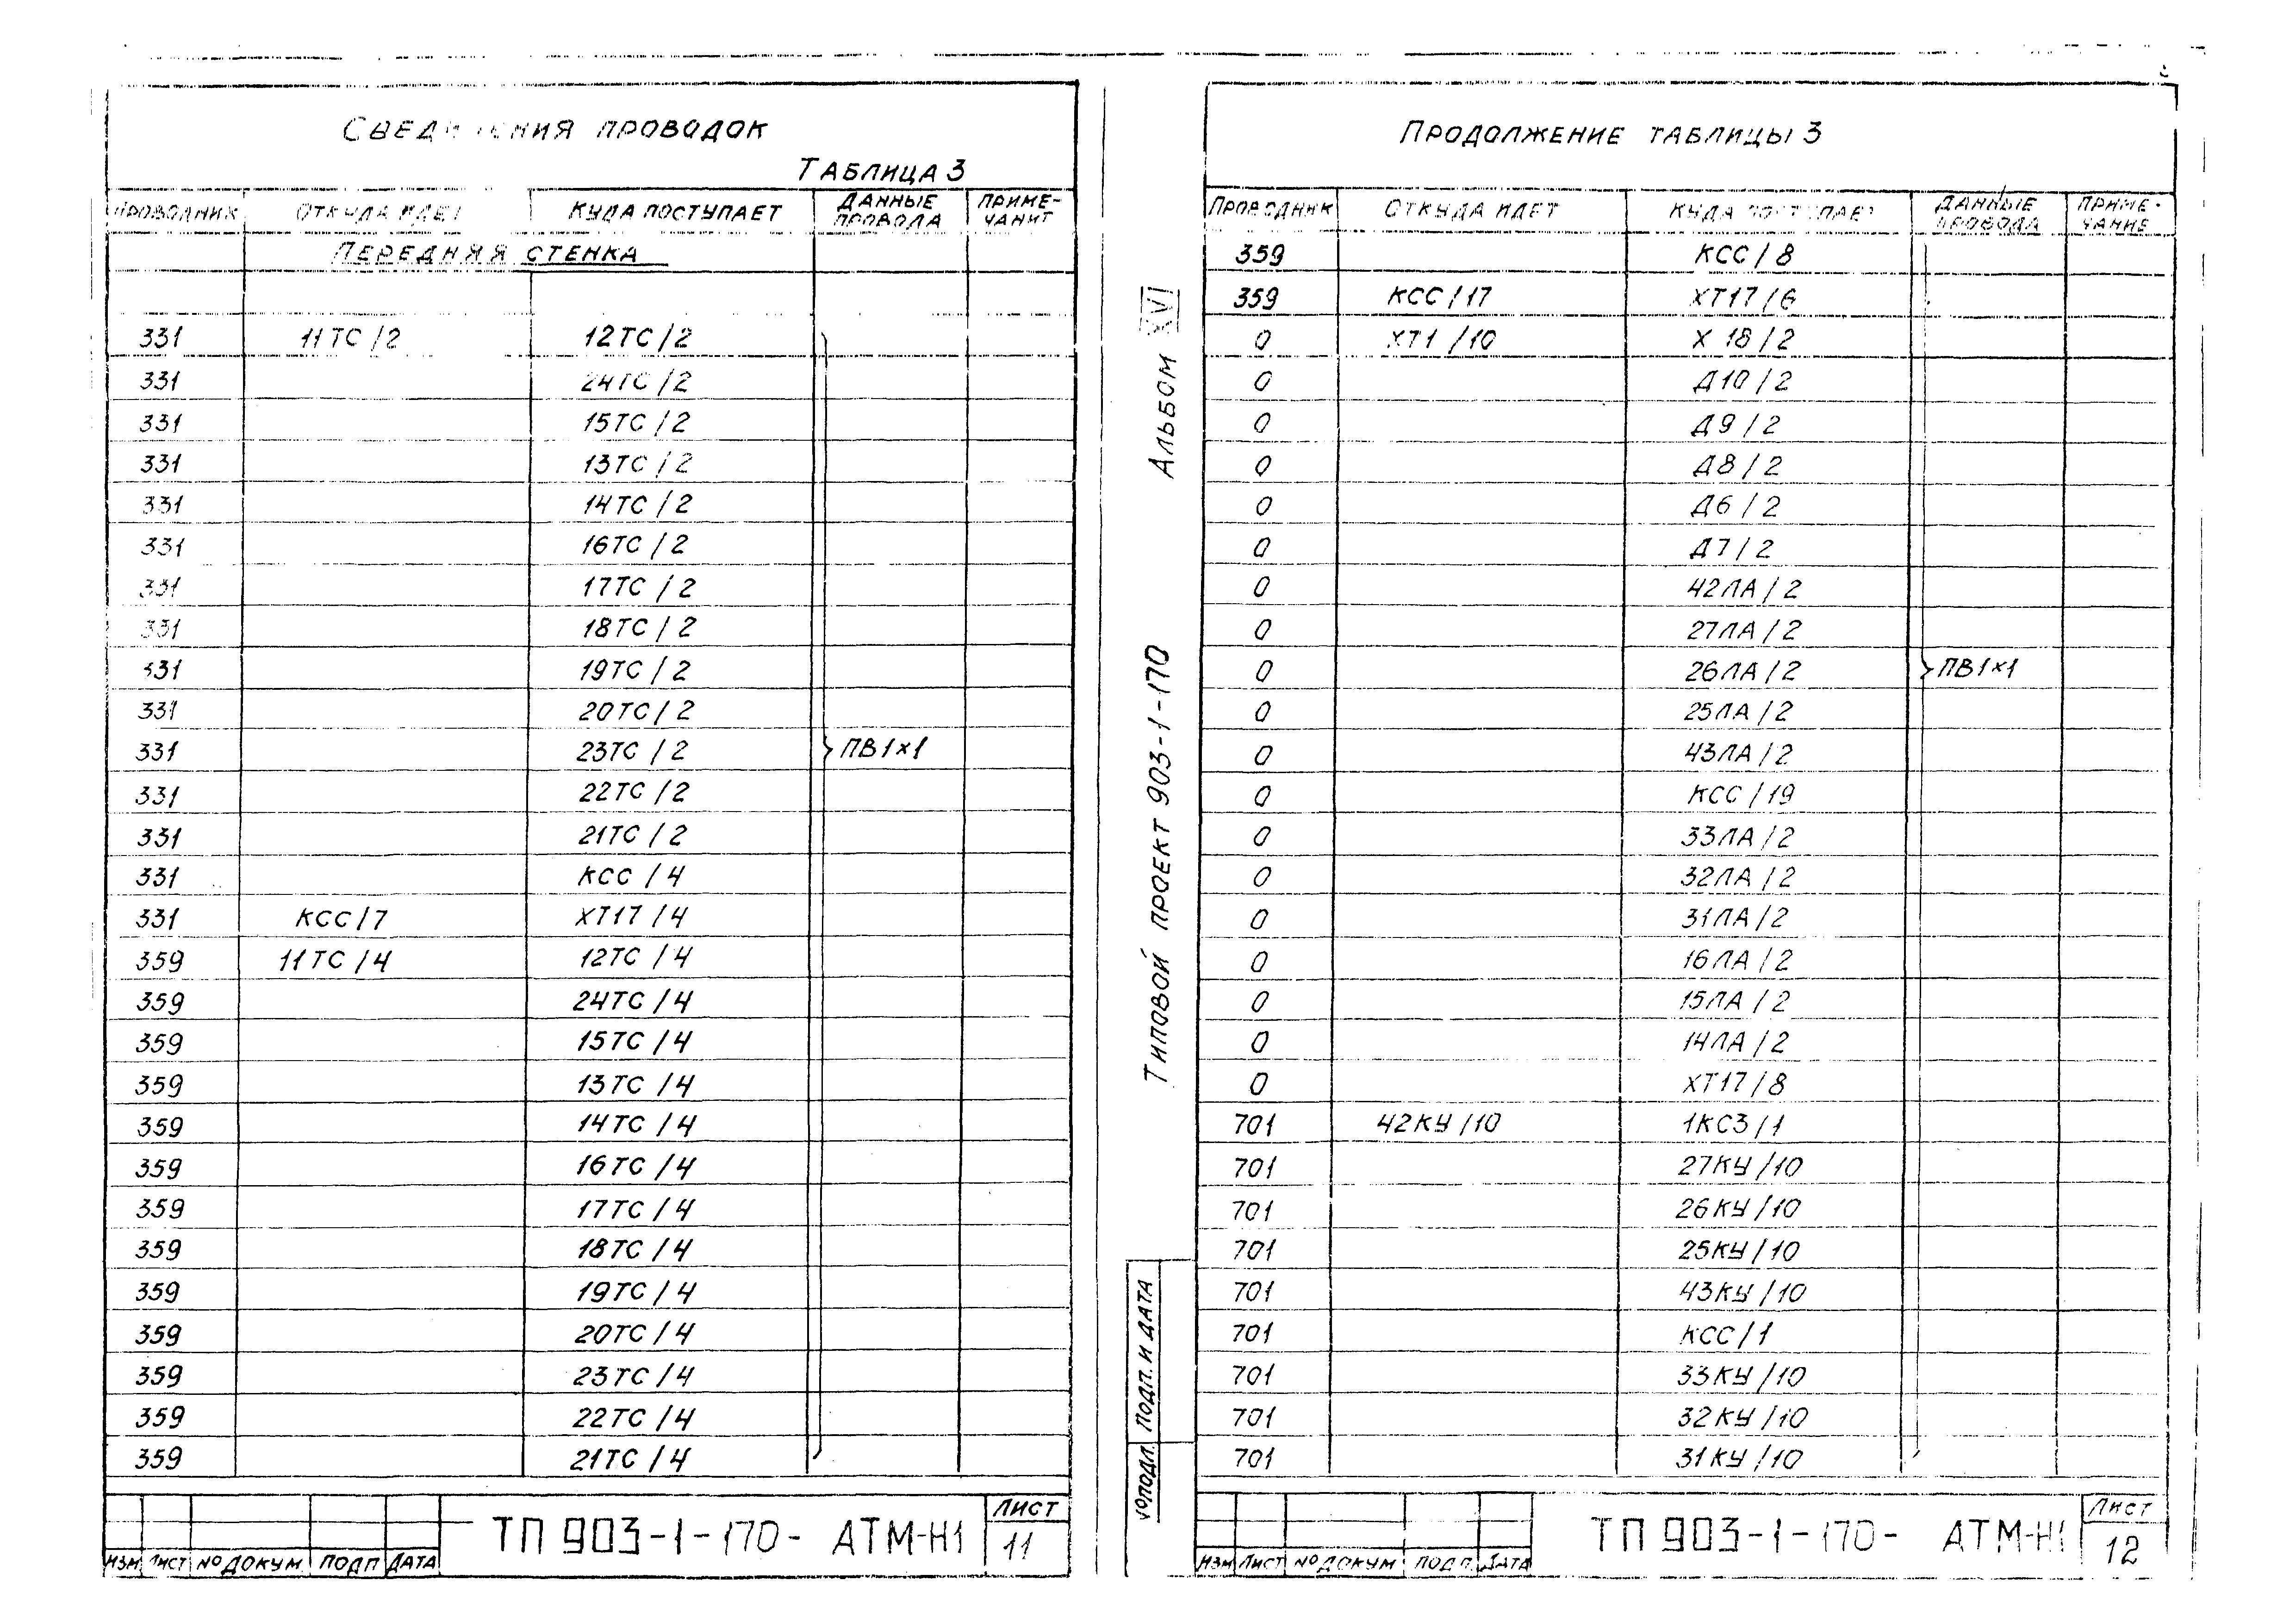 Соединения проводок
Таблица 3
Проводник Откуда идет Куда поступает Данные провода Примечанит
Передняя стенка
331 11ТС/2 12ТС/2
331 24ТС/2
331 15ТС/2
331 13ТС/2
331 14ТС/2
331 16ТС/2
331 17ТС/2
331 18ТС/2
331 19ТС/2
331 20ТС/2
331 23ТС/2 ПВ1×1
331 22ТС/2
331 21ТС/2
331 КСС/4
331 КСС/7 ХТ17/4
359 11ТС/4 12ТС/4
359 24ТС/4
359 15ТС/4
359 13ТС/4
359 14ТС/4
359 16ТС/4
359 17ТС/4
359 18ТС/4
359 19ТС/4
359 20ТС/4
359 23ТС/4
359 22ТС/4
359 21ТС/4
Изм Лист № докум Подп Дата
ТП 903-1-170- АТМ-Н1
Лист
11
Альбом XVI
Типовой проект 903-1-170
Подп. и дата
№ подл.
Продолжение таблицы 3
Проводник Откуда идет Куда поступает Данные провода Примечание
359 КСС/8
359 КСС/17 ХТ17/6
0 ХТ1/10 Х 18/2
0 Д10/2
0 Д9/2
0 Д8/2
0 Д6/2
0 Д7/2
0 42ЛА/2
0 27ЛА/2
0 26ЛА/2 ПВ1×1
0 25ЛА/2
0 43ЛА/2
0 КСС/19
0 33ЛА/2
0 32ЛА/2
0 31ЛА/2
0 16ЛА/2
0 15ЛА/2
0 14ЛА/2
0 ХТ17/8
701 42КУ/10 1КСЗ/1
701 27КУ/10
701 26КУ/10
701 25КУ/10
701 43КУ/10
701 КСС/1
701 33КУ/10
701 32КУ/10
701 31КУ/10
Изм Лист № докум Подп. Дата
ТП 903-1-170- АТМ-Н1
Лист
12